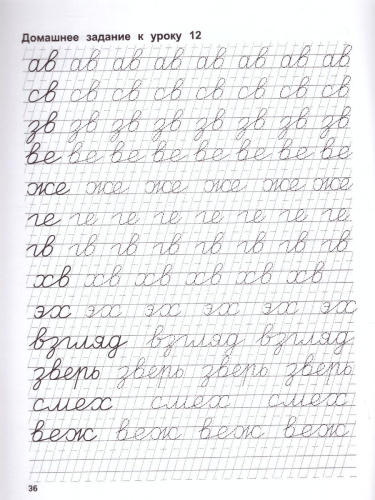 Домашнее задание к уроку 12
ав ав ав ав ав ав ав ав
св св св св св св св св
зв зв зв зв зв зв зв зв
ве ве ве ве ве ве ве ве
же же же же же же
ге ге ге ге ге ге ге ге
гв гв гв гв гв гв гв гв
хв хв хв хв хв хв
эх эх эх эх эх эх
взгляд взгляд взгляд
зверь зверь зверь зверь
смех смех смех
веж веж веж веж
36